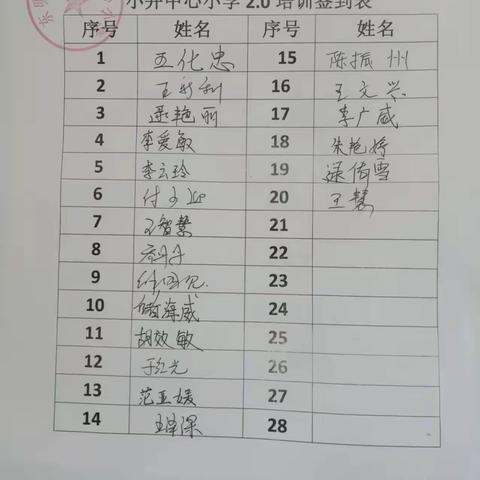 小井中心小学 2.0 培训签到表
序号 姓名 序号 姓名
1 王化忠 15 陈振州
2 王新利 16 王文兴
3 艳丽 17 李广威
4 李爱敏 18 朱艳婷
5 李云玲 19 倚雪
6 付 20 王慧
7 王智慧 21
8 22
9 23
10 海威 24
11 胡效敏 25
12 于红光 26
13 范亚媛 27
14 28